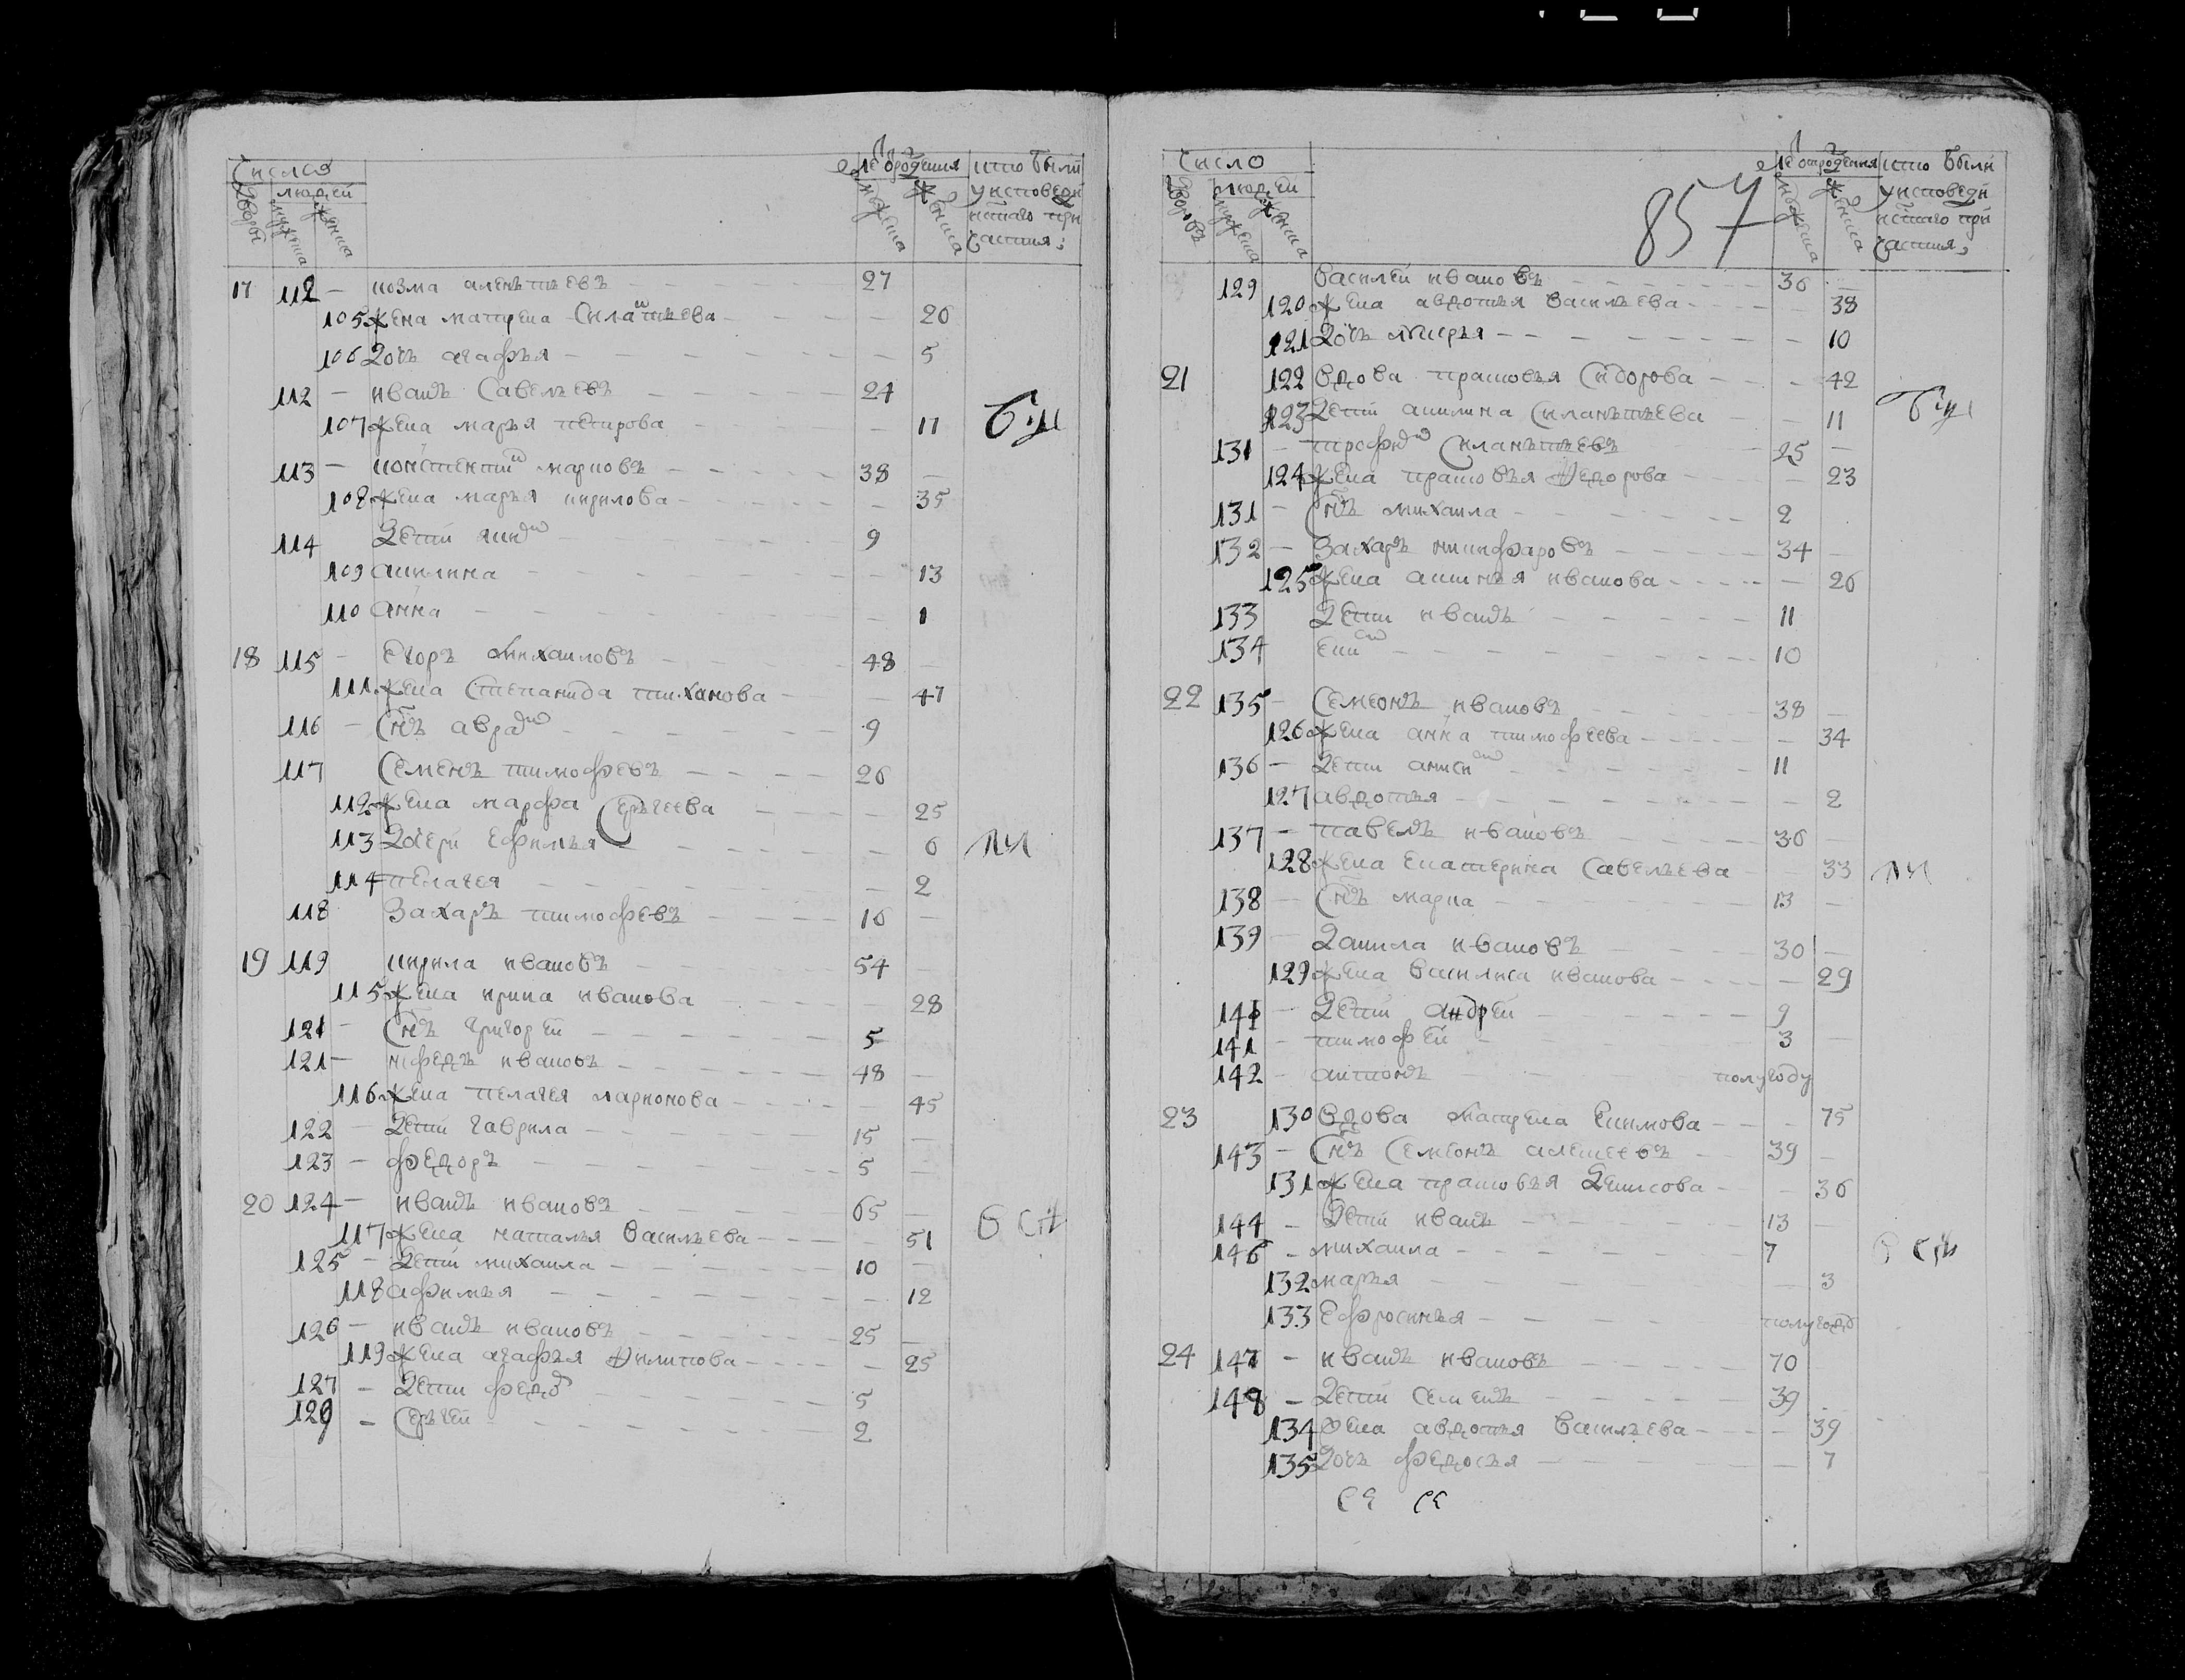 Число
людей
лѣ о рождения
кто были
у исповеди
и стаго при
частия:
17 112 — козма алек тьевъ 27
105 жена матрена Силантьева 20
106 дочь агафья 5
112 — иванъ Савельевъ 24
107 жена марья петрова
113 — марковъ 38
108 жена марья кирилова 35
114 дети 9
109 акилина 13
110 анна 1
18 115 — Егоръ михаиловъ 48
111 жена Степанида тиханова 47
116 — Снъ аврам 9
117 Семенъ тимофѣевъ 26
112 жена марфа Сергѣева 25
113 дочери ефимья 6
114 пелагея 2
118 Захаръ тимофѣевъ 16
19 119 кирила ивановъ 54
115 жена ирина иванова 28
121 — Снъ григорей 5
121 — ивановъ 48
116 жена пелагея ларионова 45
122 — дети гаврила 15
123 — федоръ 5
20 124 — иванъ ивановъ 65
117 жена наталья васильева 51
125 — дети михаила 10
118 афимья 12
126 — иванъ ивановъ 25
119 жена агафья филипова 25
127 — дети федо 5
129 — Сергей 2
Число
людей
857
кто были
у исповеди
и стаго при
частия:
129 василей ивановъ 36
120 жена авдотья васильева 38
121 дочь марья 10
21 122 вдова прасковья Сидорова 42
123 дети акилина Силантьева 11
131 — трофим Силантьевъ 25
124 жена прасковья федорова 23
131 — Снъ михаила 2
132 — Захаръ никифаровъ 34
125 жена аксинья иванова 26
133 дети иванъ 11
134 еким 10
22 135 — Семионъ ивановъ 38
126 жена анна тимофѣева 34
136 — дети аниси 11
127 авдотья 2
137 — павелъ ивановъ 36
128 жена екатерина савельева 33
138 — Снъ марка 13
139 — данила ивановъ 30
129 жена василиса иванова 29
141 — дети андрей 9
141 — тимофей 3
142 — антонъ полугоду
23 130 вдова матрена екимова 75
143 — Снъ Семионъ алексеевъ 39
131 жена прасковья денисова 36
144 — дети иванъ 13
146 — михаила 7
132 марья 3
133 ефросинья полугода
24 147 — иванъ ивановъ 70
148 — дети семенъ 39
134 жена авдотья васильева 39
135 дочь федосья 7